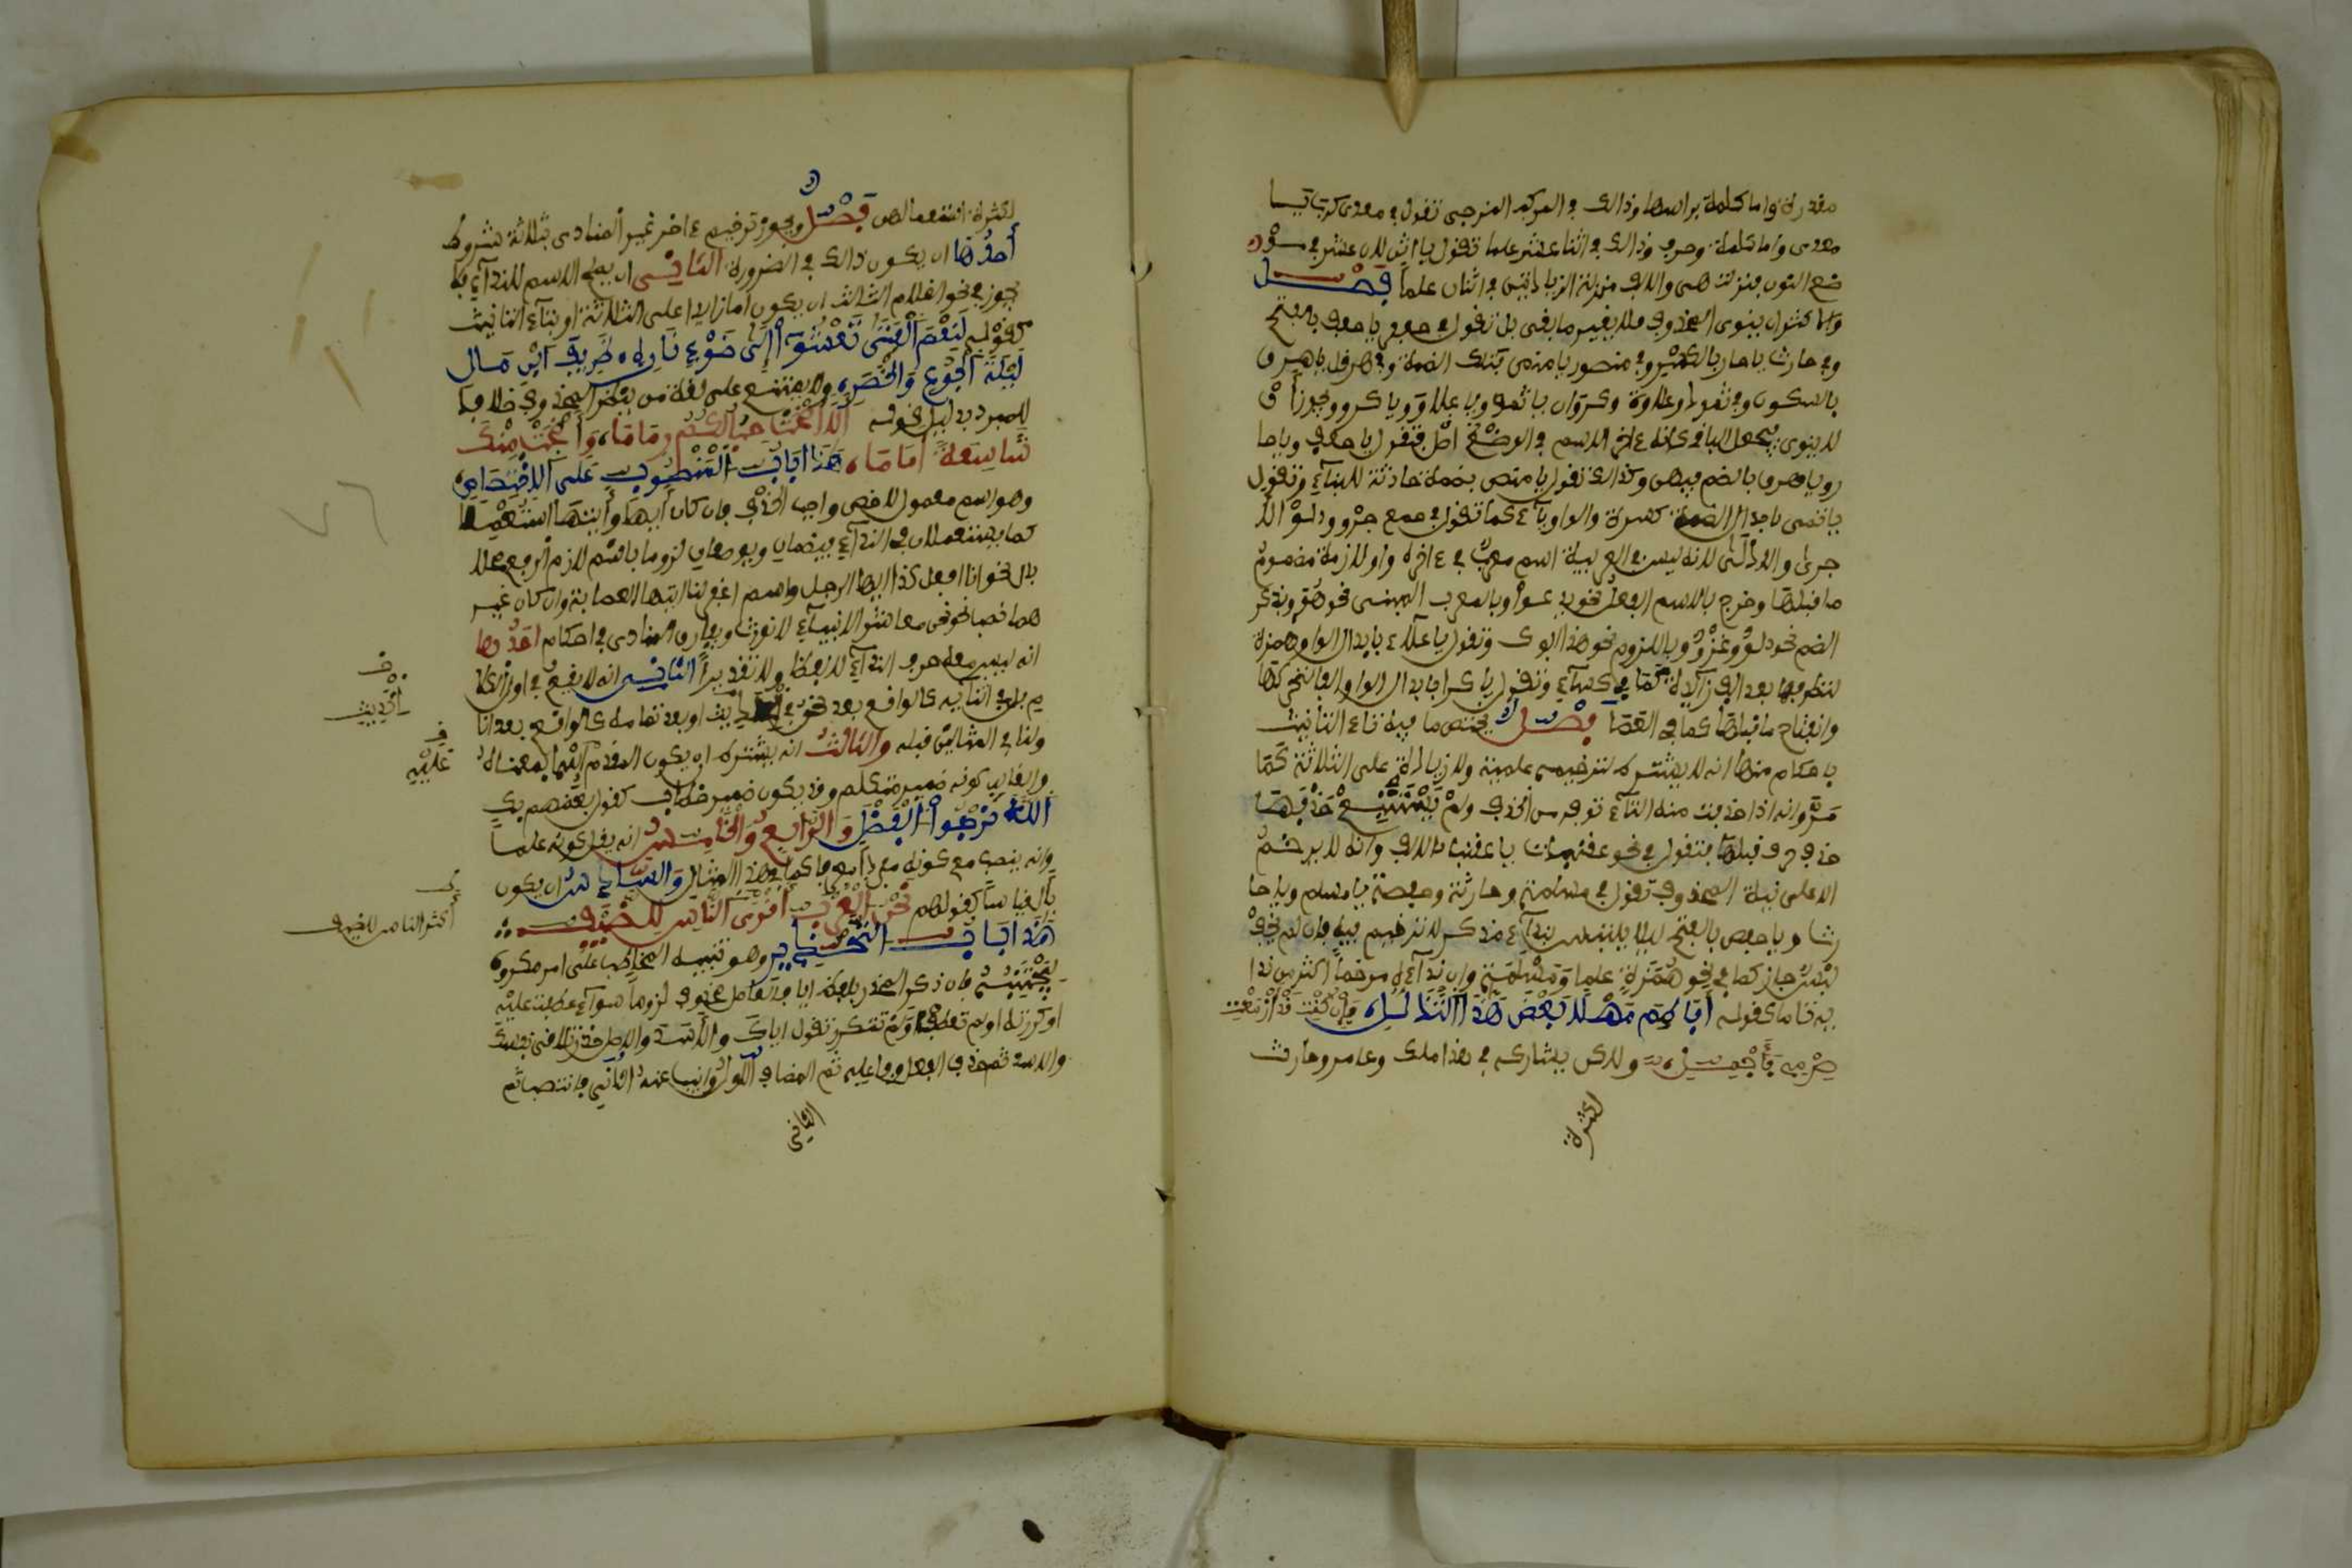 مقدرة واما كلمة براسها وذالك في المركب المزجي تقول في معدى كرب يا
معدى واما كلمة وحرف وذالك في اثنا عشر علما تقول يا اثن لان عشر في مو
ضع النون فنزلت هي والالف منزلة الزيادتين في اثنان علما فصل
والاكثر ان ينوى المحذوف فلا يغير ما بقى بل تقول في جعفر يا جعف بالفتح
وفي حارث يا حار بالكسر وفي منصور يا منص بتلك الضمة وفي هرقل يا هرق
بالسكون وفي ثمود وعلاوة وكروان يا ثمو ويا علاو ويا كرو ويجوز أن
لا ينوى فيجعل الباقي كانه ءاخر الاسم في الوضع اصلا فتقول يا جعف ويا حا
ر ويا هرق بالضم فيهن وكذالك تقول يا منص بضمة حادثة للبناء وتقول
يا ثمى بابدال الضمة كسرة والواو ياء كما تقول في جمع جرو ودلو الا
جرى والادلى لانه ليس في العربية اسم معرب في ءاخره واو لازمة مضموم
ما قبلها وخرج بالاسم الفعل نحو يدعو وبالمعرب المبنى نحو هو وبذكر
الضم نحو دلو وغزو وباللزوم نحو هذا ابوك وتقول يا علاء بابدال الواو همزة
لتطرفها بعد الف زائدة كما في كساء وتقول يا كرا بابدال الواو الفا لتحركها
وانفتاح ما قبلها كما في العصا فصل يختص ما فيه تاء التأنيث
باحكام منها انه لا يشترط لترخيمه علمية ولا زيادة على الثلاثة كما
مر وانه اذا حذفت منه التاء توفر من الحذف ولم يستتبع حذفها
حذف حرف قبلها فتقول في نحو عقنباة يا عقنبا بالالف وانه لا يرخم
الا على نية المحذوف تقول في مسلمة وحارثة وحفصة يا مسلم ويا حا
رث ويا حفص بالفتح ليلا يلتبس بنداء مذكر لا ترخيم فيه فان لم يخف
لبس جاز كما في نحو همزة علما ومسلمة وان نداءه مرخما اكثر من ندا
يه تاما كقوله أفاطم مهلا بعض هذا التدلل وإن كنت قد أزمعت
صرمي فأجملي ولاكن يشاركه في هذا ملك وعامر وحارث
لكثرة
لكثرة استعمالهن فصل ويجوز ترخيم ءاخر غير المنادى بثلاثة شروط
أحدها ان يكون ذالك في الضرورة الثاني ان يصلح الاسم للنداء فلا
يجوز في نحو الغلام الثالث ان يكون اما زايدا على الثلاثة او بتاء التانيث
كقوله لنعم الفتى تعشو إلى ضوء ناره طريف ابن مال
ليلة الجوع والخصر ولا يمتنع على لغة من ينتظر المحذوف خلافا
للمبرد بدليل قوله ألا أضحت حبالكم رماما وأضحت منك
شاسعة أماما هذا باب المنصوب على الاختصاص
وهو اسم معمول لاخص واجب الحذف فان كان أيها وأيتها استعملا
كما يستعملان في النداء فيضمان ويوصفان لزوما باسم لازم الرفع محلا
بال نحو انا افعل كذا ايها الرجل واللهم اغفر لنا ايتها العصابة وان كان غير
هما نصب نحو نحن معاشر الانبياء لا نورث ويفارق المنادى في احكام احدها
انه ليس معه حرف النداء لا لفظا ولا تقديرا الثاني انه لا يقع في اول الكلا
م بل في اثنايه كالواقع بعد نحن في الحديث او بعد تمامه كالواقع بعد انا
ولنا في المثالين قبله والثالث انه يشترط ان يكون المقدم اسما بمعناه
والغالب كونه ضمير متكلم وقد يكون ضمير خطاب كقول بعضهم بك
الله نرجوا الفضل والرابع والخامس انه يقل كونه علما
وانه ينصب مع كونه مفردا كما في هذا المثال والسادس ان يكون
بأل قياسا كقولهم نحن العرب أقرى الناس للضيف
هذا باب التحذير وهو تنبيه المخاطب على امر مكروه
ليجتنبه فان ذكر المحذر بلفظ ايا فالعامل محذوف لزوما سواء عطفت عليه
او كررته او لم تعطف ولم تكرر تقول اياك والأسد والاصل احذر تلاقى نفسك
والاسد ثم حذف الفعل وفاعله ثم المضاف الاول وانيب عنه الثاني فانتصب ثم
الثاني
عليه
أكثر الناس للضيف